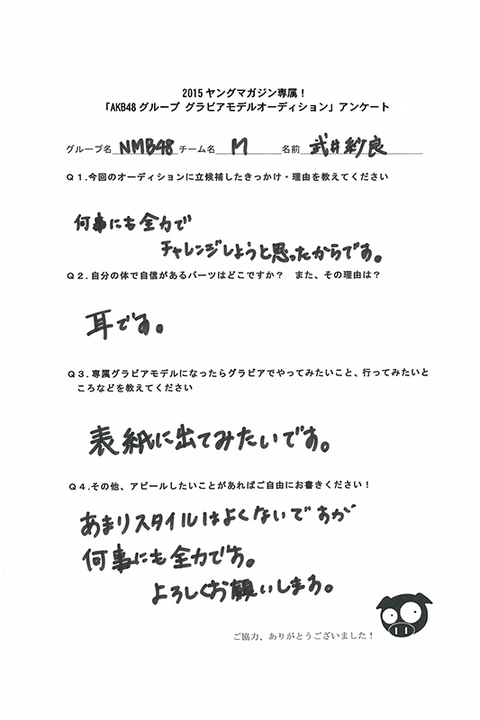 2015 ヤングマガジン専属！
「AKB48 グループ グラビアモデルオーディション」アンケート
グループ名 NMB48 チーム名 M 名前 武井紗良
Q１.今回のオーディションに立候補したきっかけ・理由を教えてください
何事にも全力で
チャレンジしようと思ったからです。
Q２.自分の体で自信があるパーツはどこですか？ また、その理由は？
耳です。
Q３.専属グラビアモデルになったらグラビアでやってみたいこと、行ってみたいと
ころなどを教えてください
表紙に出てみたいです。
Q４.その他、アピールしたいことがあればご自由にお書きください！
あまりスタイルはよくないですが
何事にも全力です。
よろしくお願いします。
ご協力、ありがとうございました！